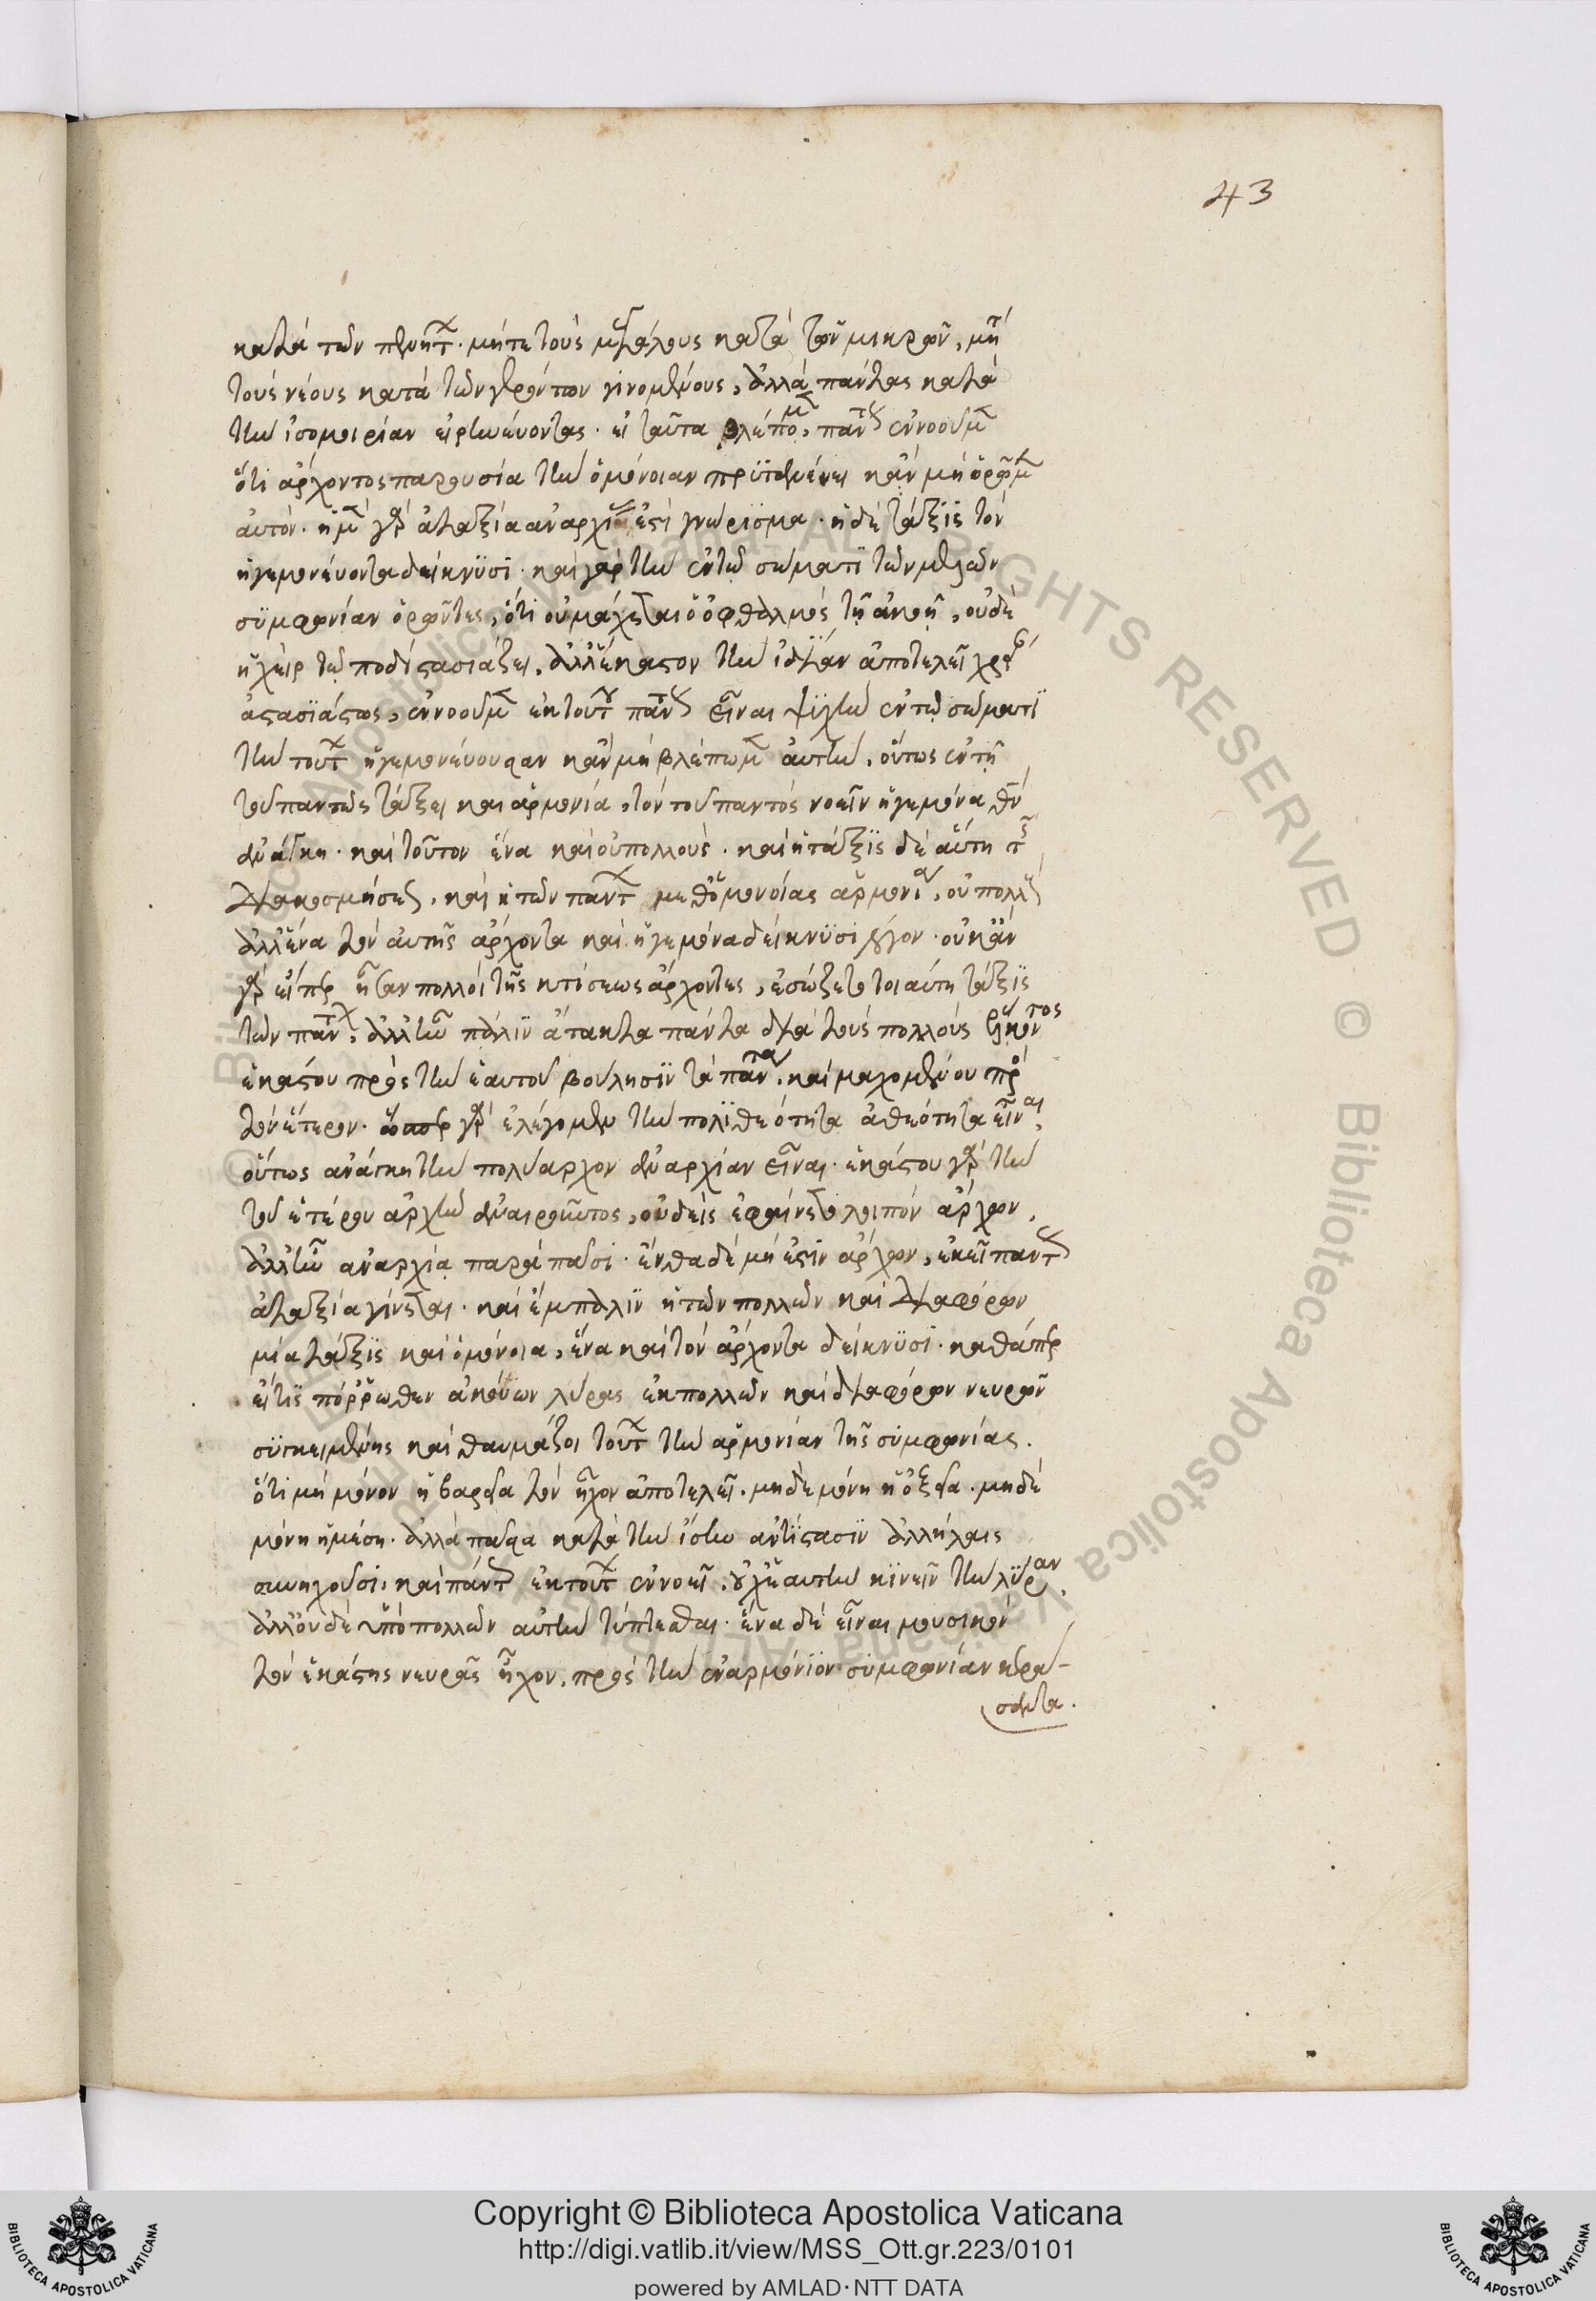 43
κατὰ τῶν πενήτων. μήτε τοὺς μεγάλους κατὰ τῶν μικρῶν, μήτε
τοὺς νέους κατὰ τῶν γερόντων γινομένους, ἀλλὰ πάντας κατὰ
τὴν ἰσομοιρίαν εἰρηνεύοντας. εἰ ταῦτα βλέπομεν, πάντως ἐννοοῦμεν
ὅτι ἄρχοντος παρουσία τὴν ὁμόνοιαν πρυτανεύει κἂν μὴ ὁρῶμεν
αὐτόν. ἡ μὲν γὰρ ἀταξία ἀναρχίας ἐστὶ γνώρισμα. ἡ δὲ τάξις τὸν
ἡγεμονεύοντα δείκνυσι. καὶ γὰρ τὴν ἐν τῷ σώματι τῶν μελῶν
συμφωνίαν ὁρῶντες, ὅτι οὐ μάχεται ὁ ὀφθαλμὸς τῇ ἀκοῇ, οὐδὲ
ἡ χεὶρ τῷ ποδὶ στασιάζει, ἀλλ' ἕκαστον τὴν ἰδίαν ἀποτελεῖ χρείαν
ἀστασιάστως, ἐννοοῦμεν ἐκ τούτου πάντως εἶναι ψυχὴν ἐν τῷ σώματι
τὴν τούτων ἡγεμονεύουσαν κἂν μὴ βλέπωμεν αὐτήν. οὕτως ἐν τῇ
τοῦ παντὸς τάξει καὶ ἁρμονία, τὸν τοῦ παντὸς νοεῖν ἡγεμόνα θεὸν
ἀνάγκη. καὶ τοῦτον ἕνα καὶ οὐ πολλούς. καὶ ἡ τάξις δὲ αὕτη τῆς
διακοσμήσεως, καὶ ἡ τῶν πάντων μεθ' ὁμονοίας ἁρμονία, οὐ πολλοὺς
ἀλλ' ἕνα τὸν αὐτῆς ἄρχοντα καὶ ἡγεμόνα δείκνυσι λόγον. οὐκ ἂν
γὰρ εἴπερ ἦσαν πολλοὶ τῆς κτίσεως ἄρχοντες, ἐσώζετο τοιαύτη τάξις
τῶν πάντων, ἀλλ' ἦν πάλιν ἄτακτα πάντα διὰ τοὺς πολλοὺς ἕλκοντος
ἑκάστου πρὸς τὴν ἑαυτοῦ βούλησιν τὰ πάντα, καὶ μαχομένου πρὸς
τὸν ἕτερον. ὥσπερ γὰρ ἐλέγομεν τὴν πολυθεότητα ἀθεότητα εἶναι,
οὕτως ἀνάγκη τὴν πολυαρχον ἀναρχίαν εἶναι. ἑκάστου γὰρ τὴν
τοῦ ἑτέρου ἀρχὴν ἀναιροῦντος, οὐδεὶς ἐφαίνετο λοιπὸν ἄρχων,
ἀλλ' ἦν ἀναρχία παρὰ πᾶσι. ἔνθα δὲ μή ἐστιν ἄρχων, ἐκεῖ πάντως
ἀταξία γίνεται. καὶ ἔμπαλιν ἡ τῶν πολλῶν καὶ διαφόρων
μία τάξις καὶ ὁμόνοια, ἕνα καὶ τὸν ἄρχοντα δείκνυσι. καθάπερ
εἴ τις πόρρωθεν ἀκούων λύρας ἐκ πολλῶν καὶ διαφόρων νευρῶν
συγκειμένης καὶ θαυμάζοι τούτων τὴν ἁρμονίαν τῆς συμφωνίας.
ὅτι μὴ μόνον ἡ βαρεῖα τὸν ἦχον ἀποτελεῖ. μηδὲ μόνη ἡ ὀξεῖα. μηδὲ
μόνη ἡ μέση. ἀλλὰ πᾶσαι κατὰ τὴν ἴσην ἀντίστασιν ἀλλήλαις
συνηχοῦσι. καὶ πάντως ἐκ τούτων ἐννοεῖ, οὐχ' ἑαυτὴν κινεῖν τὴν λύραν,
ἀλλ' οὐδὲ ὑπὸ πολλῶν αὐτὴν τύπτεσθαι. ἕνα δὲ εἶναι μουσικὸν
τὸν ἑκάστης νευρᾶς ἦχον, πρὸς τὴν ἐναρμόνιον συμφωνίαν κερά-
σαντα.
Copyright © Biblioteca Apostolica Vaticana
http://digi.vatlib.it/view/MSS_Ott.gr.223/0101
powered by AMLAD·NTT DATA